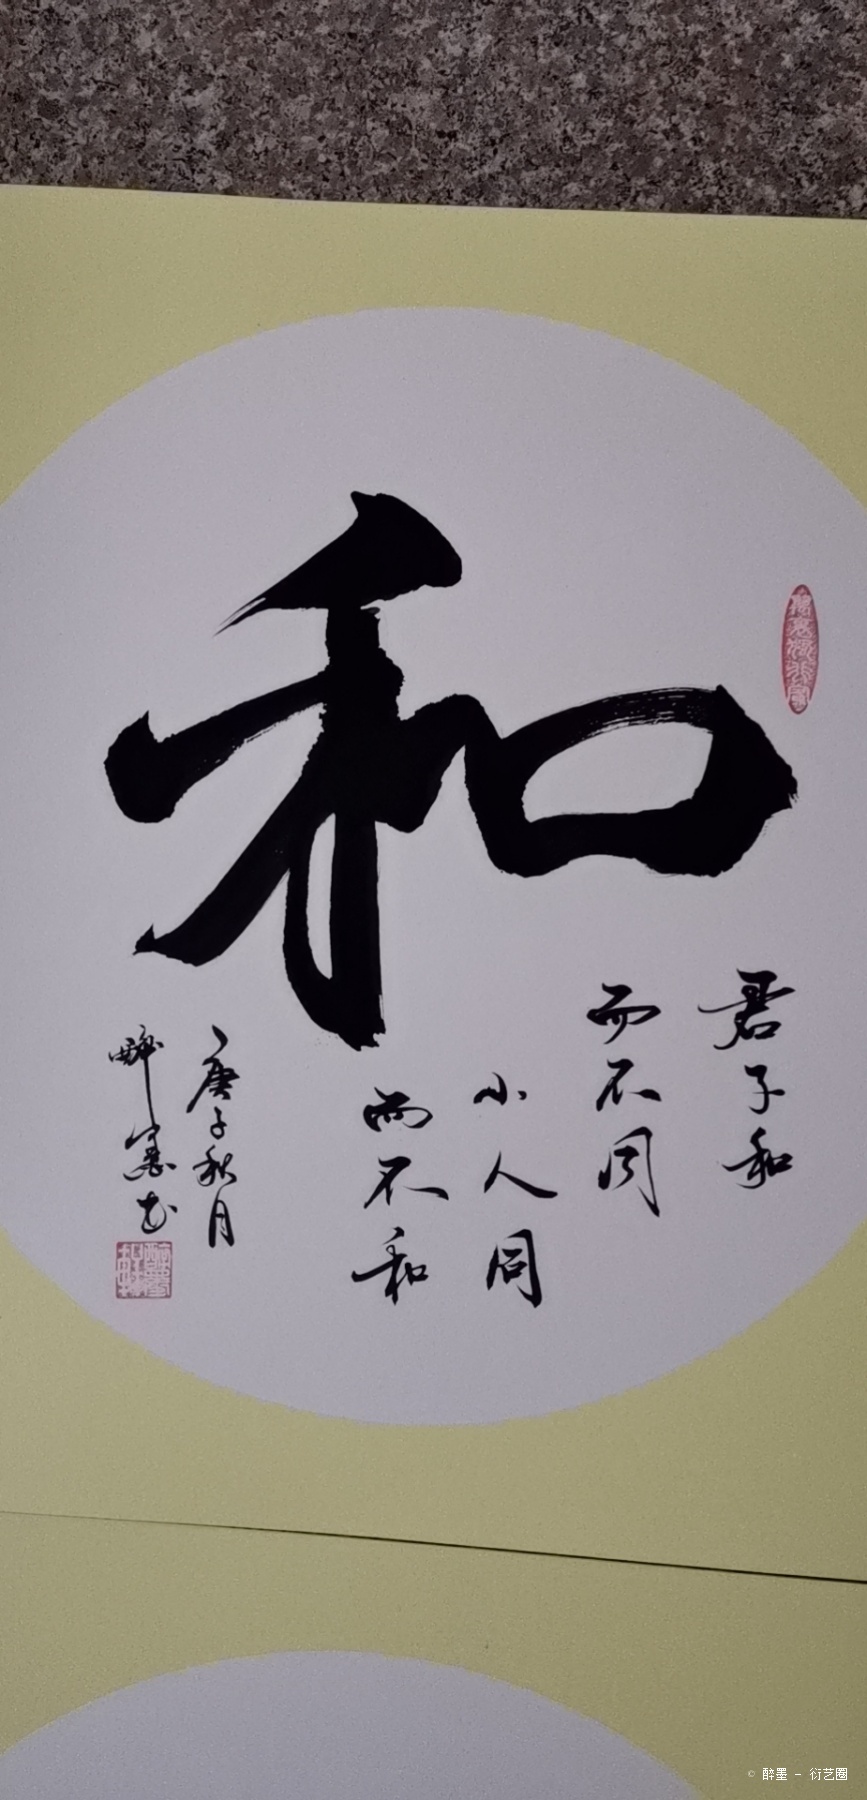 和
君子和
而不同
小人同
而不和
庚子秋月
醉墨书
© 醉墨 - 衍艺圈